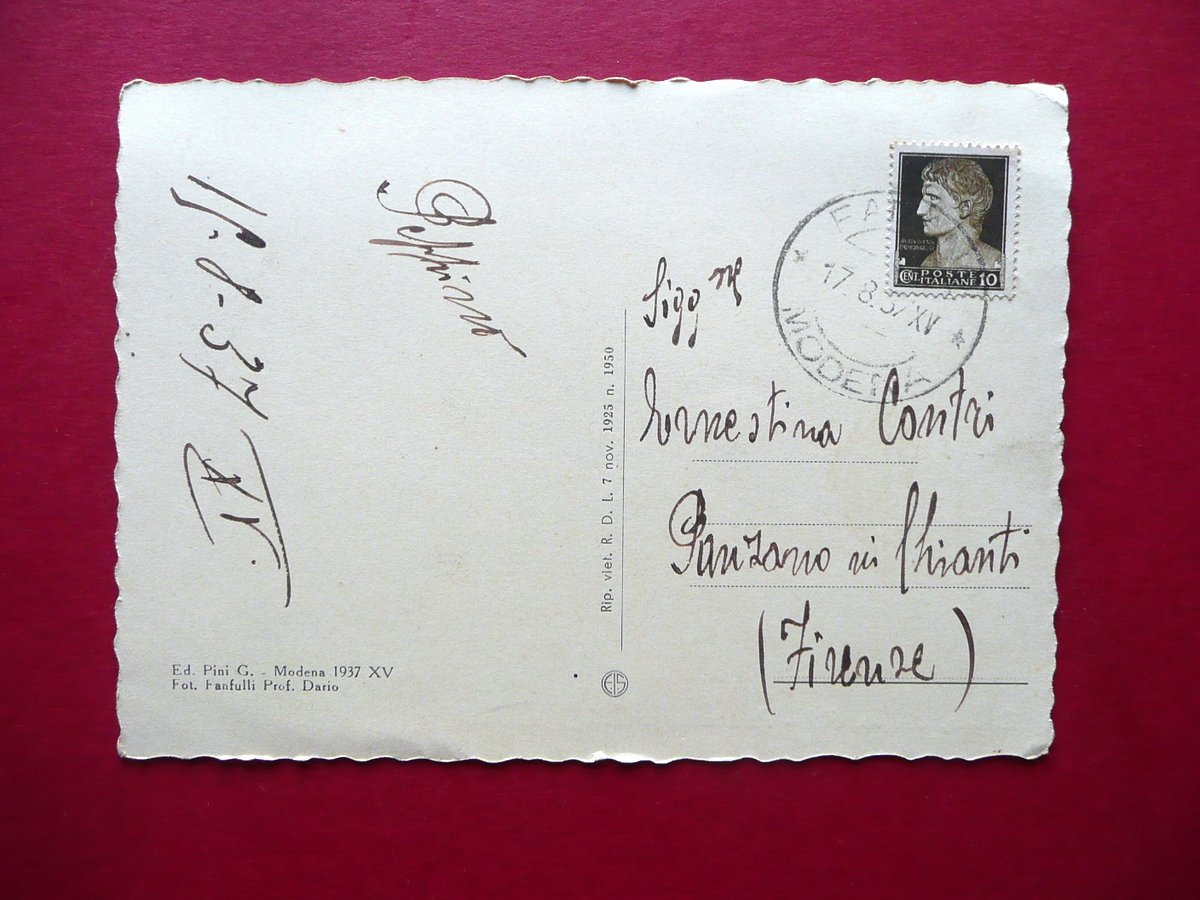 Beppino
17-8-37 XV.
Sigg.na
Ernestina Contri
Panzano in Chianti
(Firenze)
MODENA
17.8.37 XV
AVGVSTVS
CENT. POSTE ITALIANE 10
Rip. viet. R. D. L. 7 nov. 1925 n. 1950
EIS
Ed. Pini G. - Modena 1937 XV
Fot. Fanfulli Prof. Dario